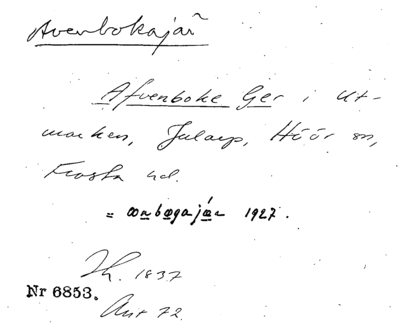 Avenbokajär
Afvenboke Ger i Ut-
marken, Jularp, Höör sn,
Frosta hd.
= avnbogajár 1927.
Lh. 1837
Nr 6853.
Akt 72